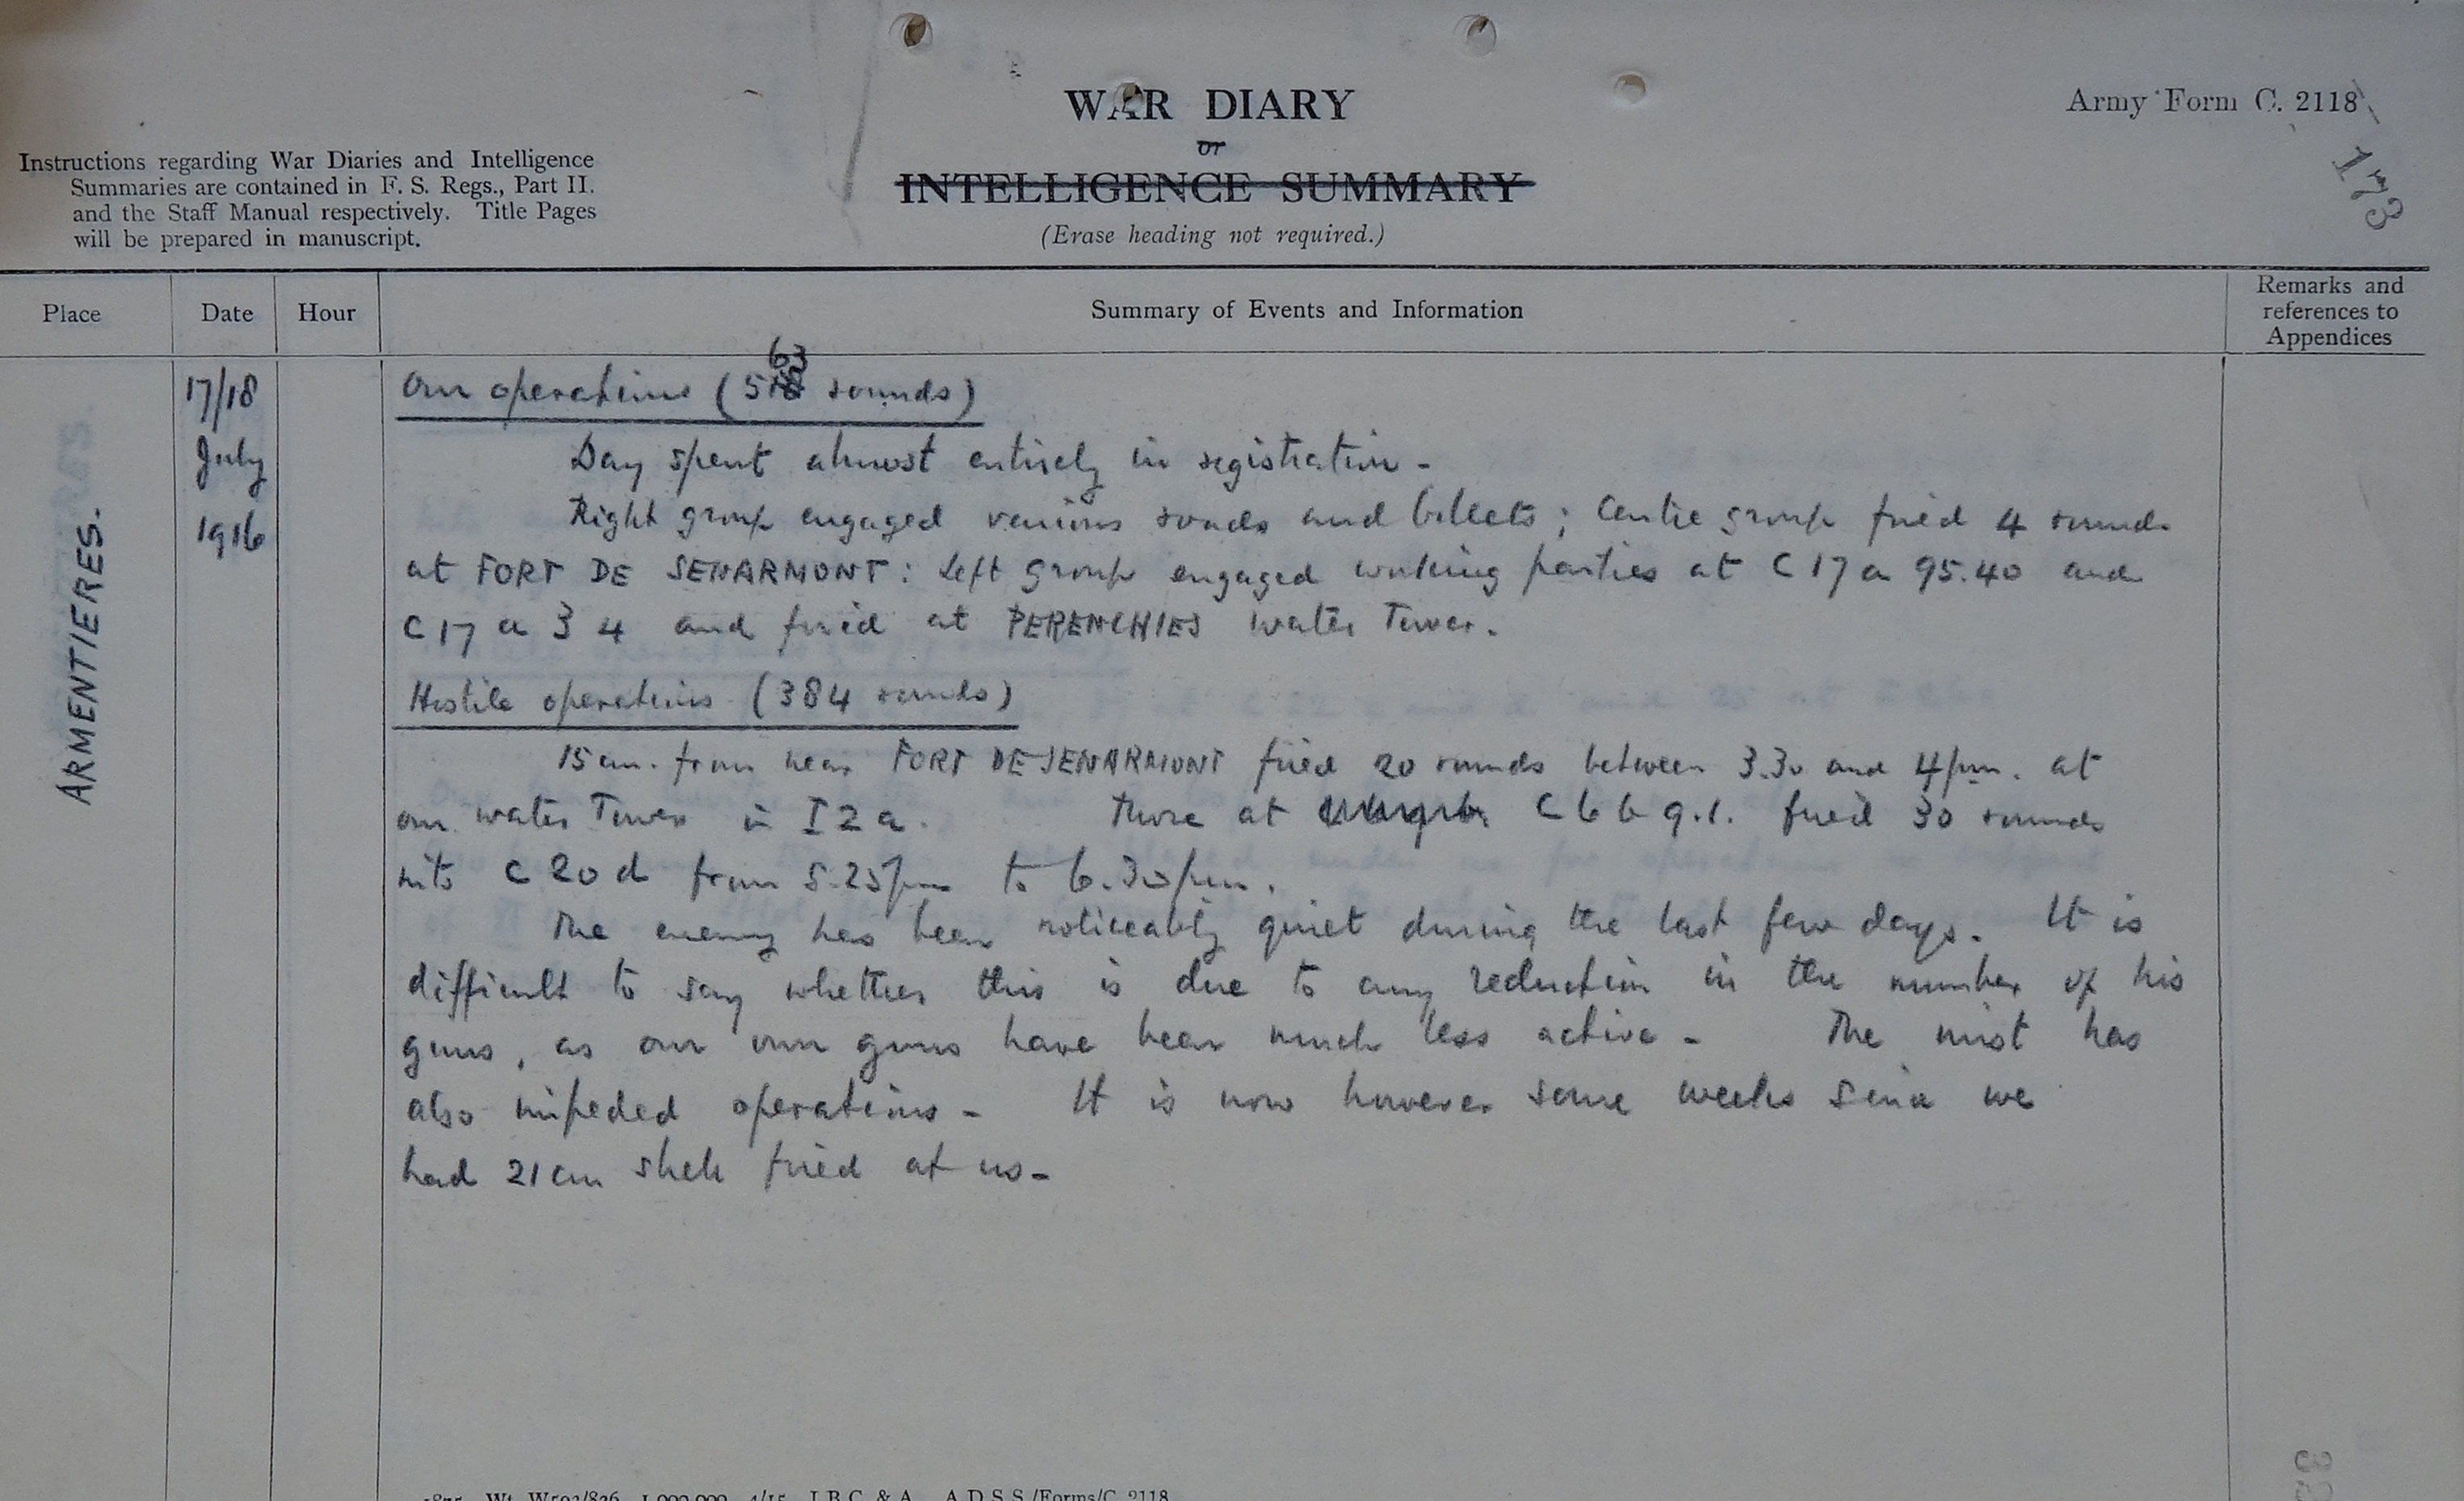 WAR DIARY
or
INTELLIGENCE SUMMARY
(Erase heading not required.)
Army Form C. 2118
173
Instructions regarding War Diaries and Intelligence
Summaries are contained in F. S. Regs., Part II.
and the Staff Manual respectively. Title Pages
will be prepared in manuscript.
Place Date Hour Summary of Events and Information Remarks and
references to
Appendices
ARMENTIERES.
17/18
July
1916
63
Our operations (5 rounds)
Day spent almost entirely in registration -
Right group engaged various roads and billets ; Centre group fired 4 rounds
at FORT DE SENARMONT : Left group engaged working parties at C 17 a 95.40 and
C 17 a 3 4 and fired at PERENCHIES water Tower.
Hostile operations (384 rounds)
15 cm. from near FORT DE SENARMONT fired 20 rounds between 3.30 and 4 pm. at
our water Tower in I 2 a. Those at C 6 b 9.1. fired 30 rounds
into C 20 d from 5.25 pm to 6.30 pm.
The enemy has been noticeably quiet during the last few days. It is
difficult to say whether this is due to any reduction in the number of his
guns, as our own guns have been much less active - The mist has
also impeded operations - It is now however some weeks since we
had 21 cm shell fired at us -
Wt. W593/826 1,000,000 4/15 J.B.C. & A. A.D.S.S./Forms/C. 2118.